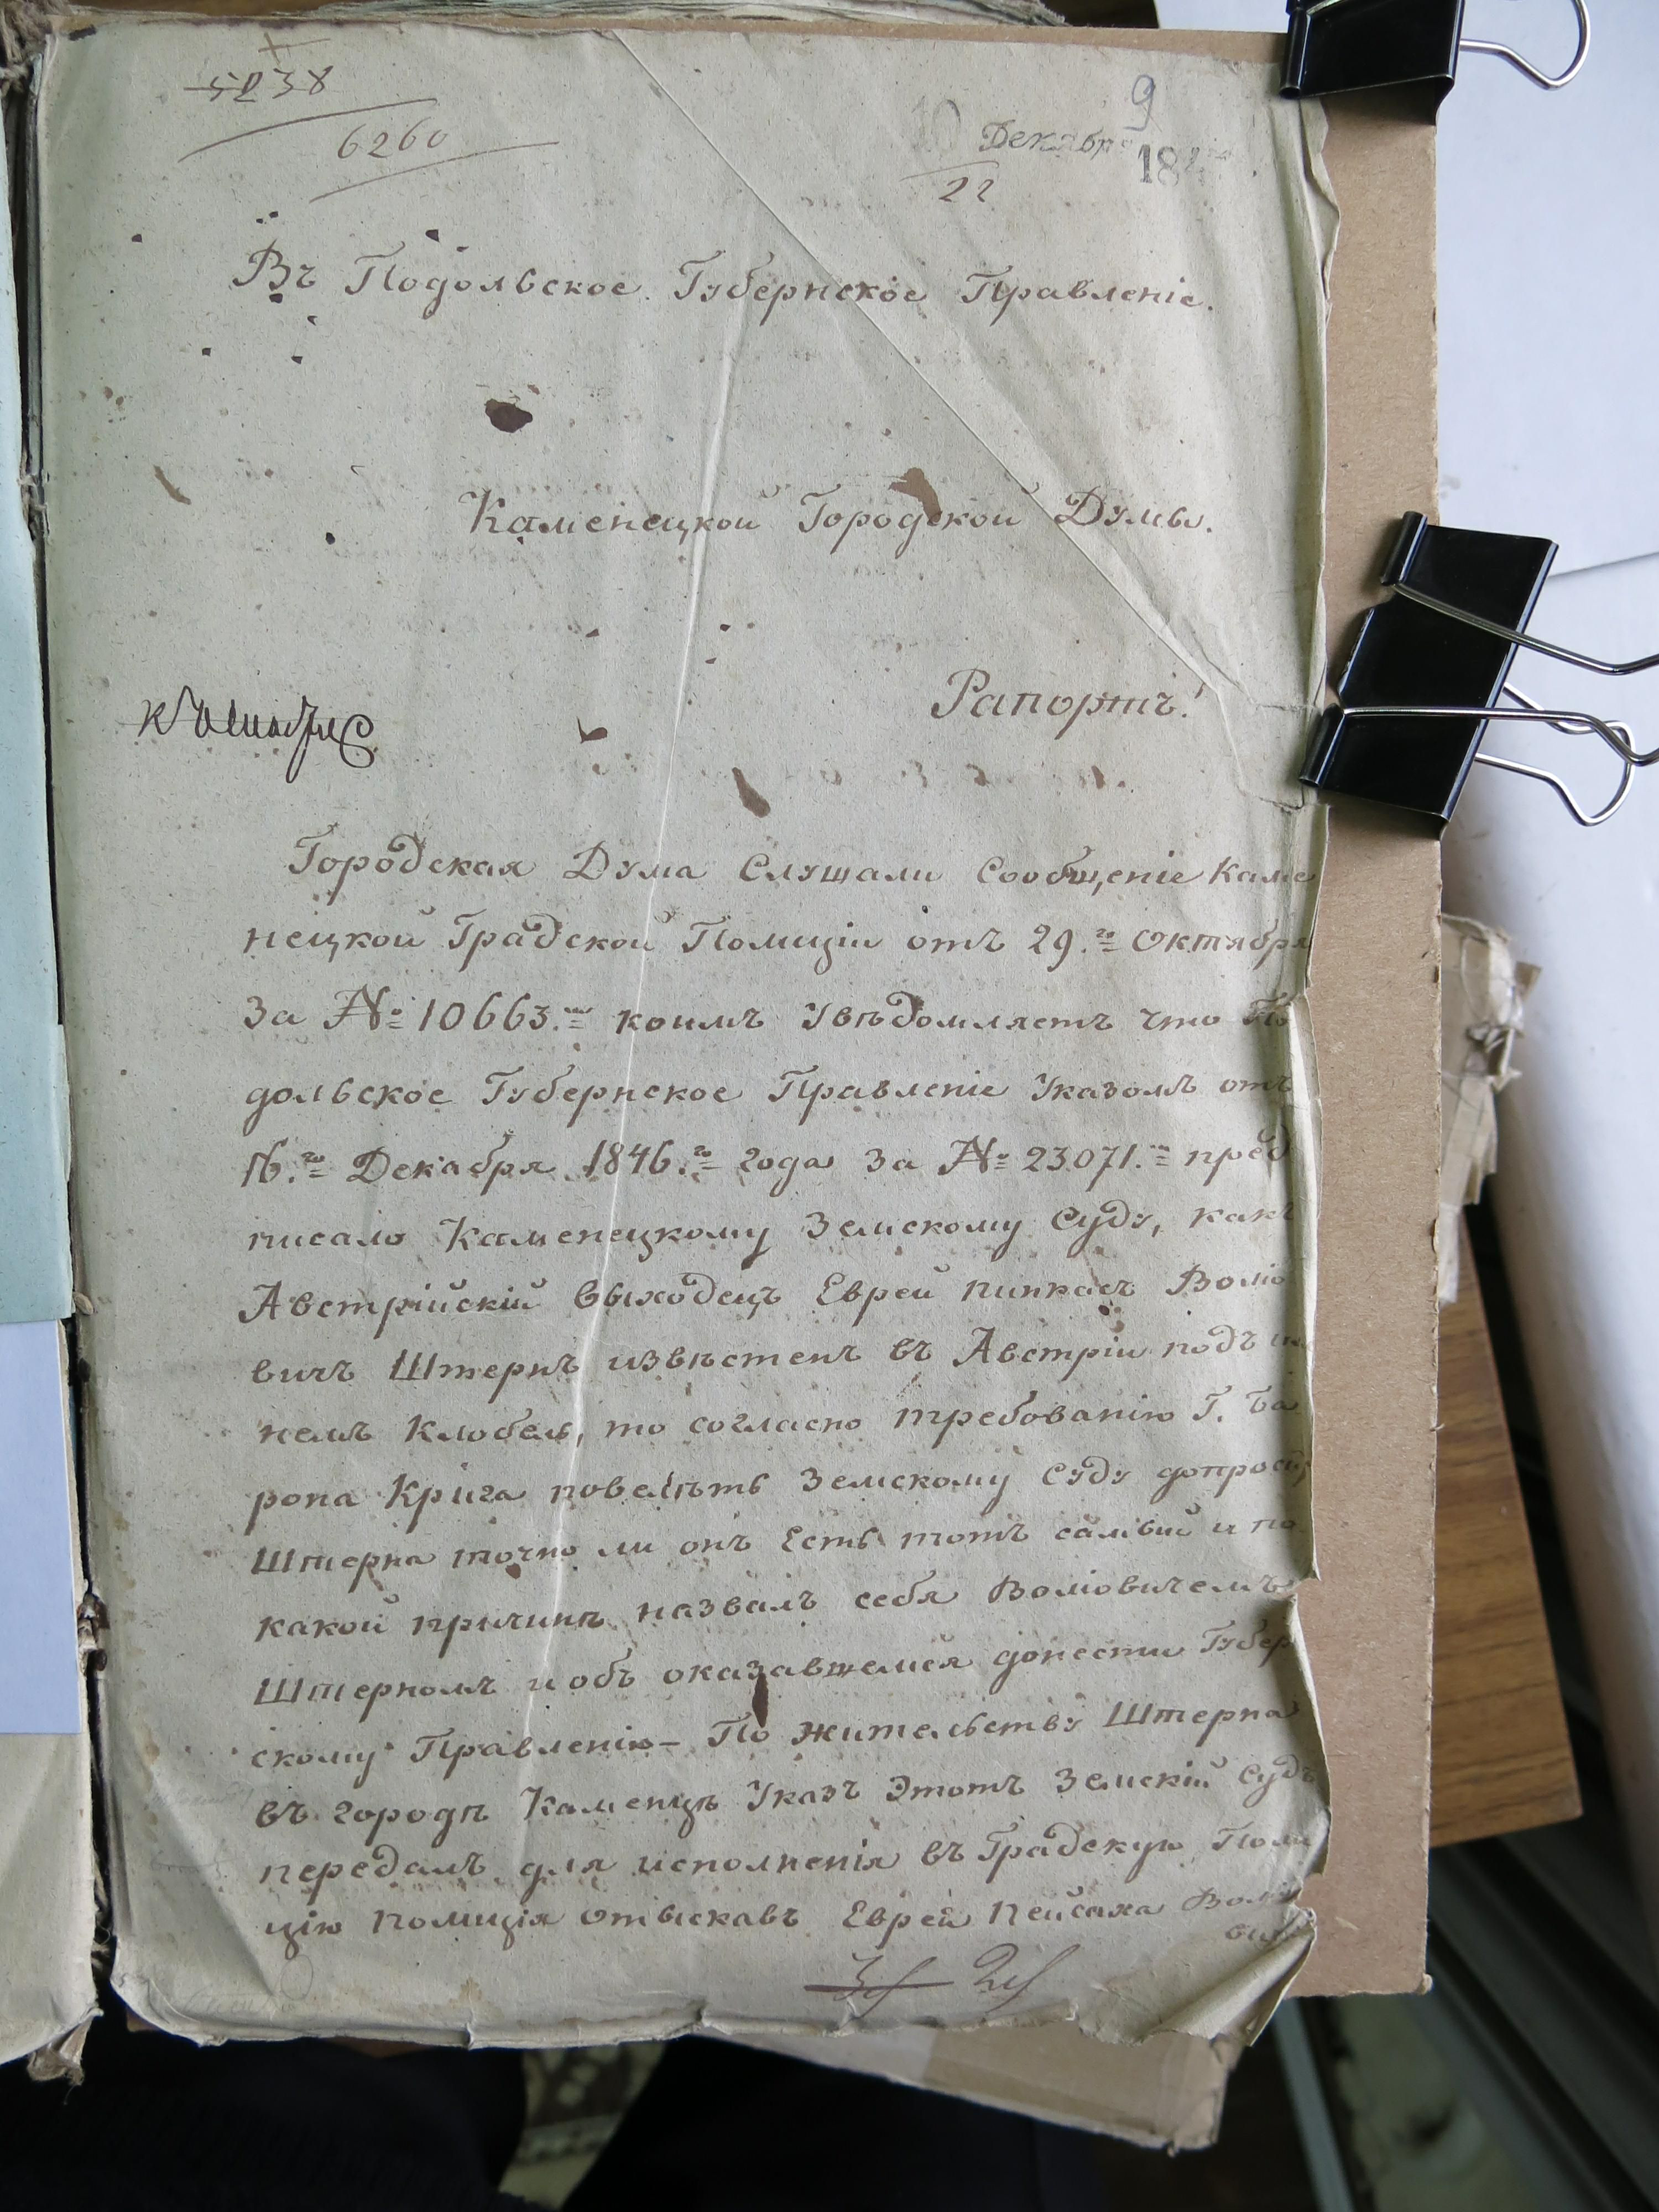 5238
6260
9
10 Декабр 184
22
Въ Подольское Губернское Правленіе.
Каменецкой Городской Думы.
Рапортъ!
Городская Дума Слушали Сообщеніе Каме
нецкой Градской Полиціи отъ 29.го Октября
За № 10663.мъ коимъ Увѣдомляетъ что По
дольское Губернское Правленіе Указомъ отъ
16.го Декабря 1846.го года За № 23071.мъ пред
писало Каменецкому Земскому Суду, какъ
Австрійскій выходецъ Еврей Пинкасъ Воліо
вичъ Штернъ извѣстенъ въ Австріи подъ им
немъ Клюбель, то согласно требованію Г. Ба
рона Крига повелѣть Земскому Суду допросить
Штерна точно ли онъ Есть тотъ самый и по
какой причинѣ назвалъ себя Воліовичемъ
Штерномъ и объ оказавшемся донести Губер
скому Правленію – По жительству Штерна
въ городѣ Каменцѣ Указъ Этотъ Земскій Судъ
передалъ для исполненія въ Градскую Поли
цію Полиція отыскавъ Еврея Пейсаха Воліо
вич